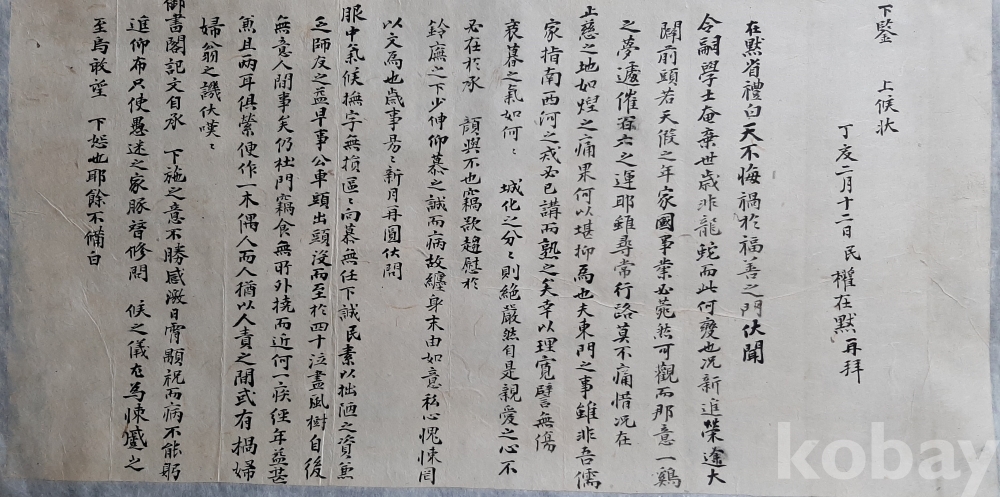 下鑒　上候狀
丁亥二月十二日民權在默再拜
在默省禮白天不悔禍於福善之門伏聞
令嗣學士奄棄世歲非龍蛇而此何變也況新進榮途大
闢前頭若天假之年家國事業必菀然可觀而那意一鷄
之夢遽催百六之運耶雖尋常行路莫不痛惜況在
止慈之地如煌之痛果何以堪抑爲也夫東門之事雖非吾儒
家指南西河之戒必已講而熟之矣幸以理寬譬無傷
衰暮之氣如何〻城化之分〻則絶嚴然自是親愛之心不
必在於承　顔與不也竊欲趨慰於
鈴廡之下少伸仰慕之誠而病故纏身末由如意私心愧悚罔
以文爲也歲事易〻新月再圓伏問
服中氣候撫字無損區〻向慕無任下誠民素以拙陋之資兼
乏師友之益早事公車頭出頭沒而至於四十泣盡風樹自後
無意人間事矣仍杜門竊食無所外撓而近何一疾經年益甚
兼且兩耳俱縈便作一木偶人而人猶以人責之閒或有搗婦
婦翁之譏伏嘆〻
御書閣記文自承　下施之意不勝感激日宵顒祝而病不能躬
進仰布只使愚迷之家豚替修問　候之儀在爲悚蹙之
至烏敢望　下恕也耶餘不備白
kobay